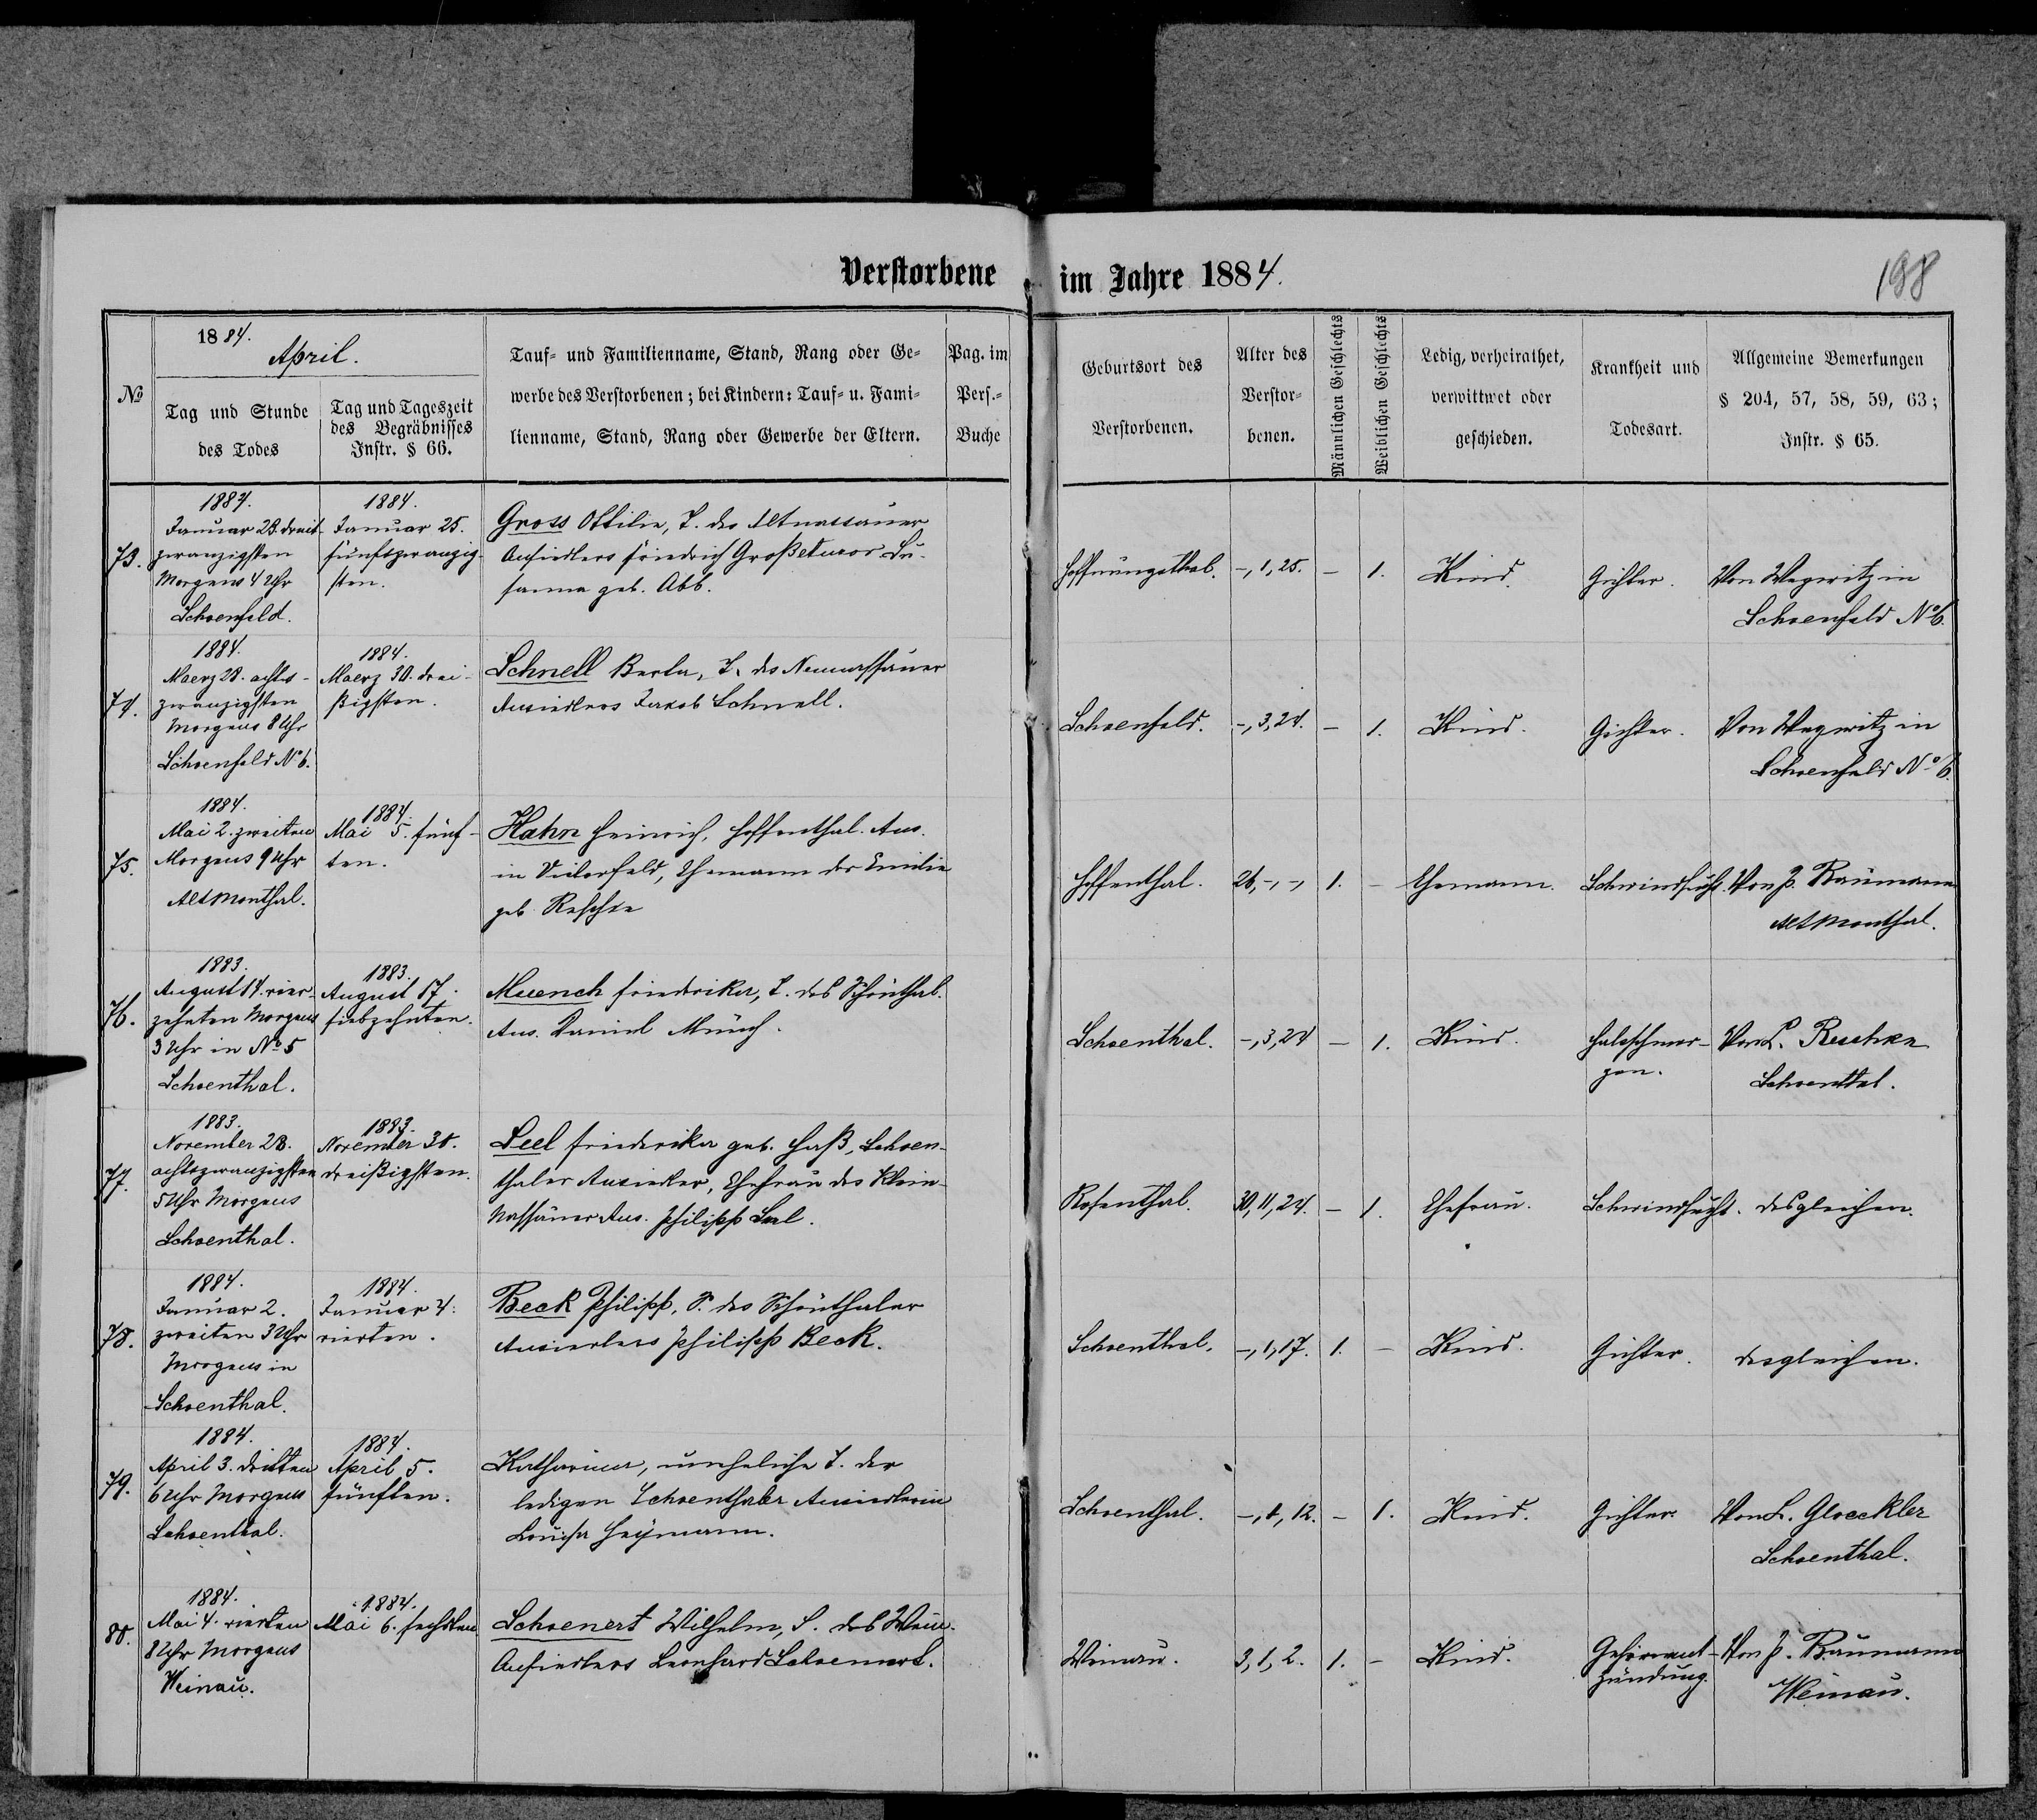 Verstorbene im Jahre 1884.
198
№
1884.
April.
Tag und Stunde
des Todes
Tag und Tageszeit
des Begräbnisses
Instr. § 66.
Tauf- und Familienname, Stand, Rang oder Ge-
werbe des Verstorbenen; bei Kindern: Tauf- u. Fami-
lienname, Stand, Rang oder Gewerbe der Eltern.
Pag. im
Pers.-
Buche
Geburtsort des
Verstorbenen.
Alter des
Verstor-
benen.
Männlichen Geschlechts
Weiblichen Geschlechts
Ledig, verheirathet,
verwittwet oder
geschieden.
Krankheit und
Todesart.
Allgemeine Bemerkungen
§ 204, 57, 58, 59, 63;
Instr. § 65.
73.
1884.
Januar 23. dreiund-
zwanzigsten
Morgens 4 Uhr
Schoenfeld.
1884.
Januar 25.
fünfzwanzig-
sten.
Gross Ottilie, T. des Altnassauer
Ansiedlers Friedrich Groß
sanna geb. Abb.
Hoffnungsthal.
-, 1, 25.
-
1.
Kind.
Gichter.
Von Wegwitz in
Schoenfeld No 6.
74.
1884.
Maerz 28. acht-
zwanzigsten
Morgens 8 Uhr
Schoenfeld No 6.
1884.
Maerz 30. drei-
ßigsten.
Schnell Berta, T. des Neunassauer
Ansiedlers Jakob Schnell.
Schoenfeld.
-, 3, 24.
-
1.
Kind.
Gichter.
Von Wegwitz in
Schoenfeld No 6.
75.
1884.
Mai 2. zweiten
Morgens 9 Uhr
Altmonthal.
1884.
Mai 5. fünf-
ten.
Hahn Heinrich, Hoffenthal. Ans.
in , Ehemann der Emilie
geb. Reschke
Hoffenthal.
26, -, -,
1.
-
Ehemann.
Schwindsucht.
Von J. Baumann
Altmonthal.
76.
1883.
August 14. vier-
zehnten Morgens
3 Uhr in No 5
Schoenthal.
1883.
August 17.
siebzehnten.
Muench Friederika, T. des Schönthal.
Ans. Daniel Münch.
Schoenthal.
-, 3, 24
-
1.
Kind.
Halsschmer-
zen.
Von L. Reschke
Schoenthal.
77.
1883.
November 28.
achtzwanzigsten
5 Uhr Morgens
Schoenthal.
1883.
November 30.
dreißigsten.
Leel Friederika geb. Haß, Schoen-
thaler Ansiedler, Ehefrau des Klein-
Nassauer Ans. Philipp Leel.
Rosenthal.
30, 11, 24.
-
1.
Ehefrau.
Schwindsucht.
desgleichen.
78.
1884.
Januar 2.
zweiten 3 Uhr
Morgens in
Schoenthal.
1884.
Januar 4.
vierten.
Beck Philipp, S. des Schönthaler
Ansiedlers Philipp Beck.
Schoenthal.
-, 1, 17.
1.
-
Kind.
Gichter.
desgleichen.
79.
1884.
April 3. dritten
6 Uhr Morgens
Schoenthal.
1884.
April 5.
fünften.
Katharina, uneheliche T. der
ledigen Schoenthaler Ansiedlerin
Louisa Heymann.
Schoenthal.
-, 1, 12.
-
1.
Kind.
Gichter.
Von L. Gloeckler
Schoenthal.
80.
1884.
Mai 4. vierten
8 Uhr Morgens
Weinau.
1884.
Mai 6. sechsten
Schoenert Wilhelm, S. des Wein.
Ansiedlers Leonhard Schoenert.
Weinau.
3, 1, 2.
1.
-
Kind.
Gehirnent-
zündung.
Von J. Baumann
Weinau.